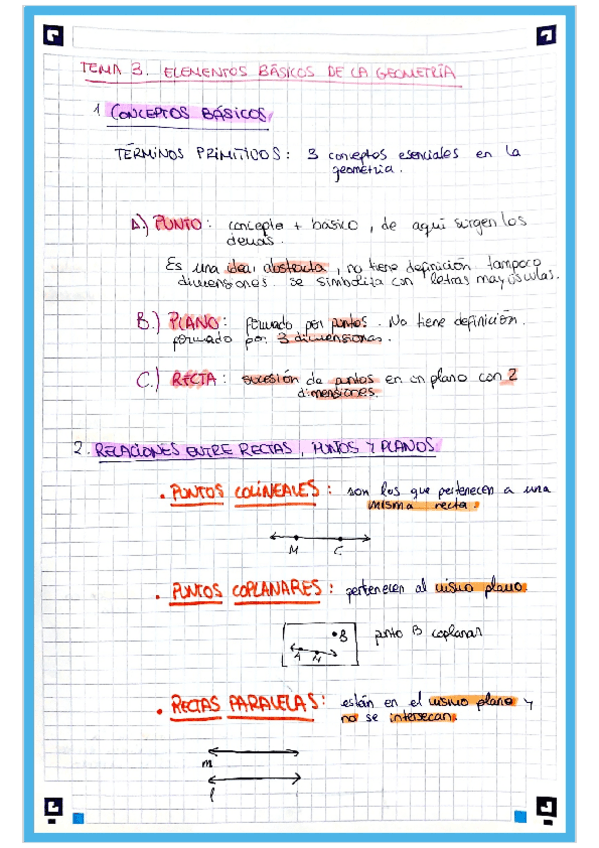 TEMA 3. ELEMENTOS BÁSICOS DE LA GEOMETRÍA
1 CONCEPTOS BÁSICOS
TÉRMINOS PRIMITIVOS: 3 conceptos esenciales en la
geometría.
A.) PUNTO: concepto + básico, de aquí surgen los
demás.
Es una idea abstracta, no tiene definición tampoco
dimensiones. se simboliza con letras mayúsculas.
B.) PLANO: formado por puntos. No tiene definición.
formado por 3 dimensiones.
C.) RECTA: sucesión de puntos en un plano con 2
dimensiones.
2. RELACIONES ENTRE RECTAS, PUNTOS Y PLANOS
• PUNTOS COLINEALES: son los que pertenecen a una
misma recta.
M C
• PUNTOS COPLANARES: pertenecen al mismo plano
B punto B coplanar
A M
• RECTAS PARALELAS: están en el mismo plano y
no se intersecan.
m
l